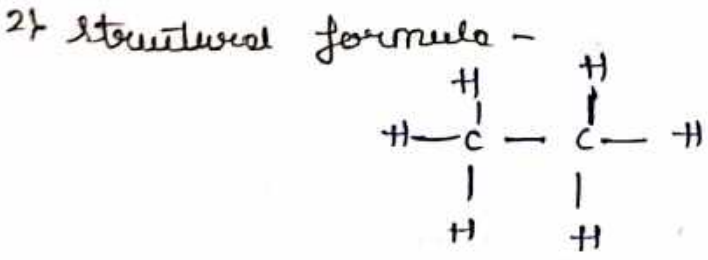 2) Structural formula -
H H
H — C — C — H
H H